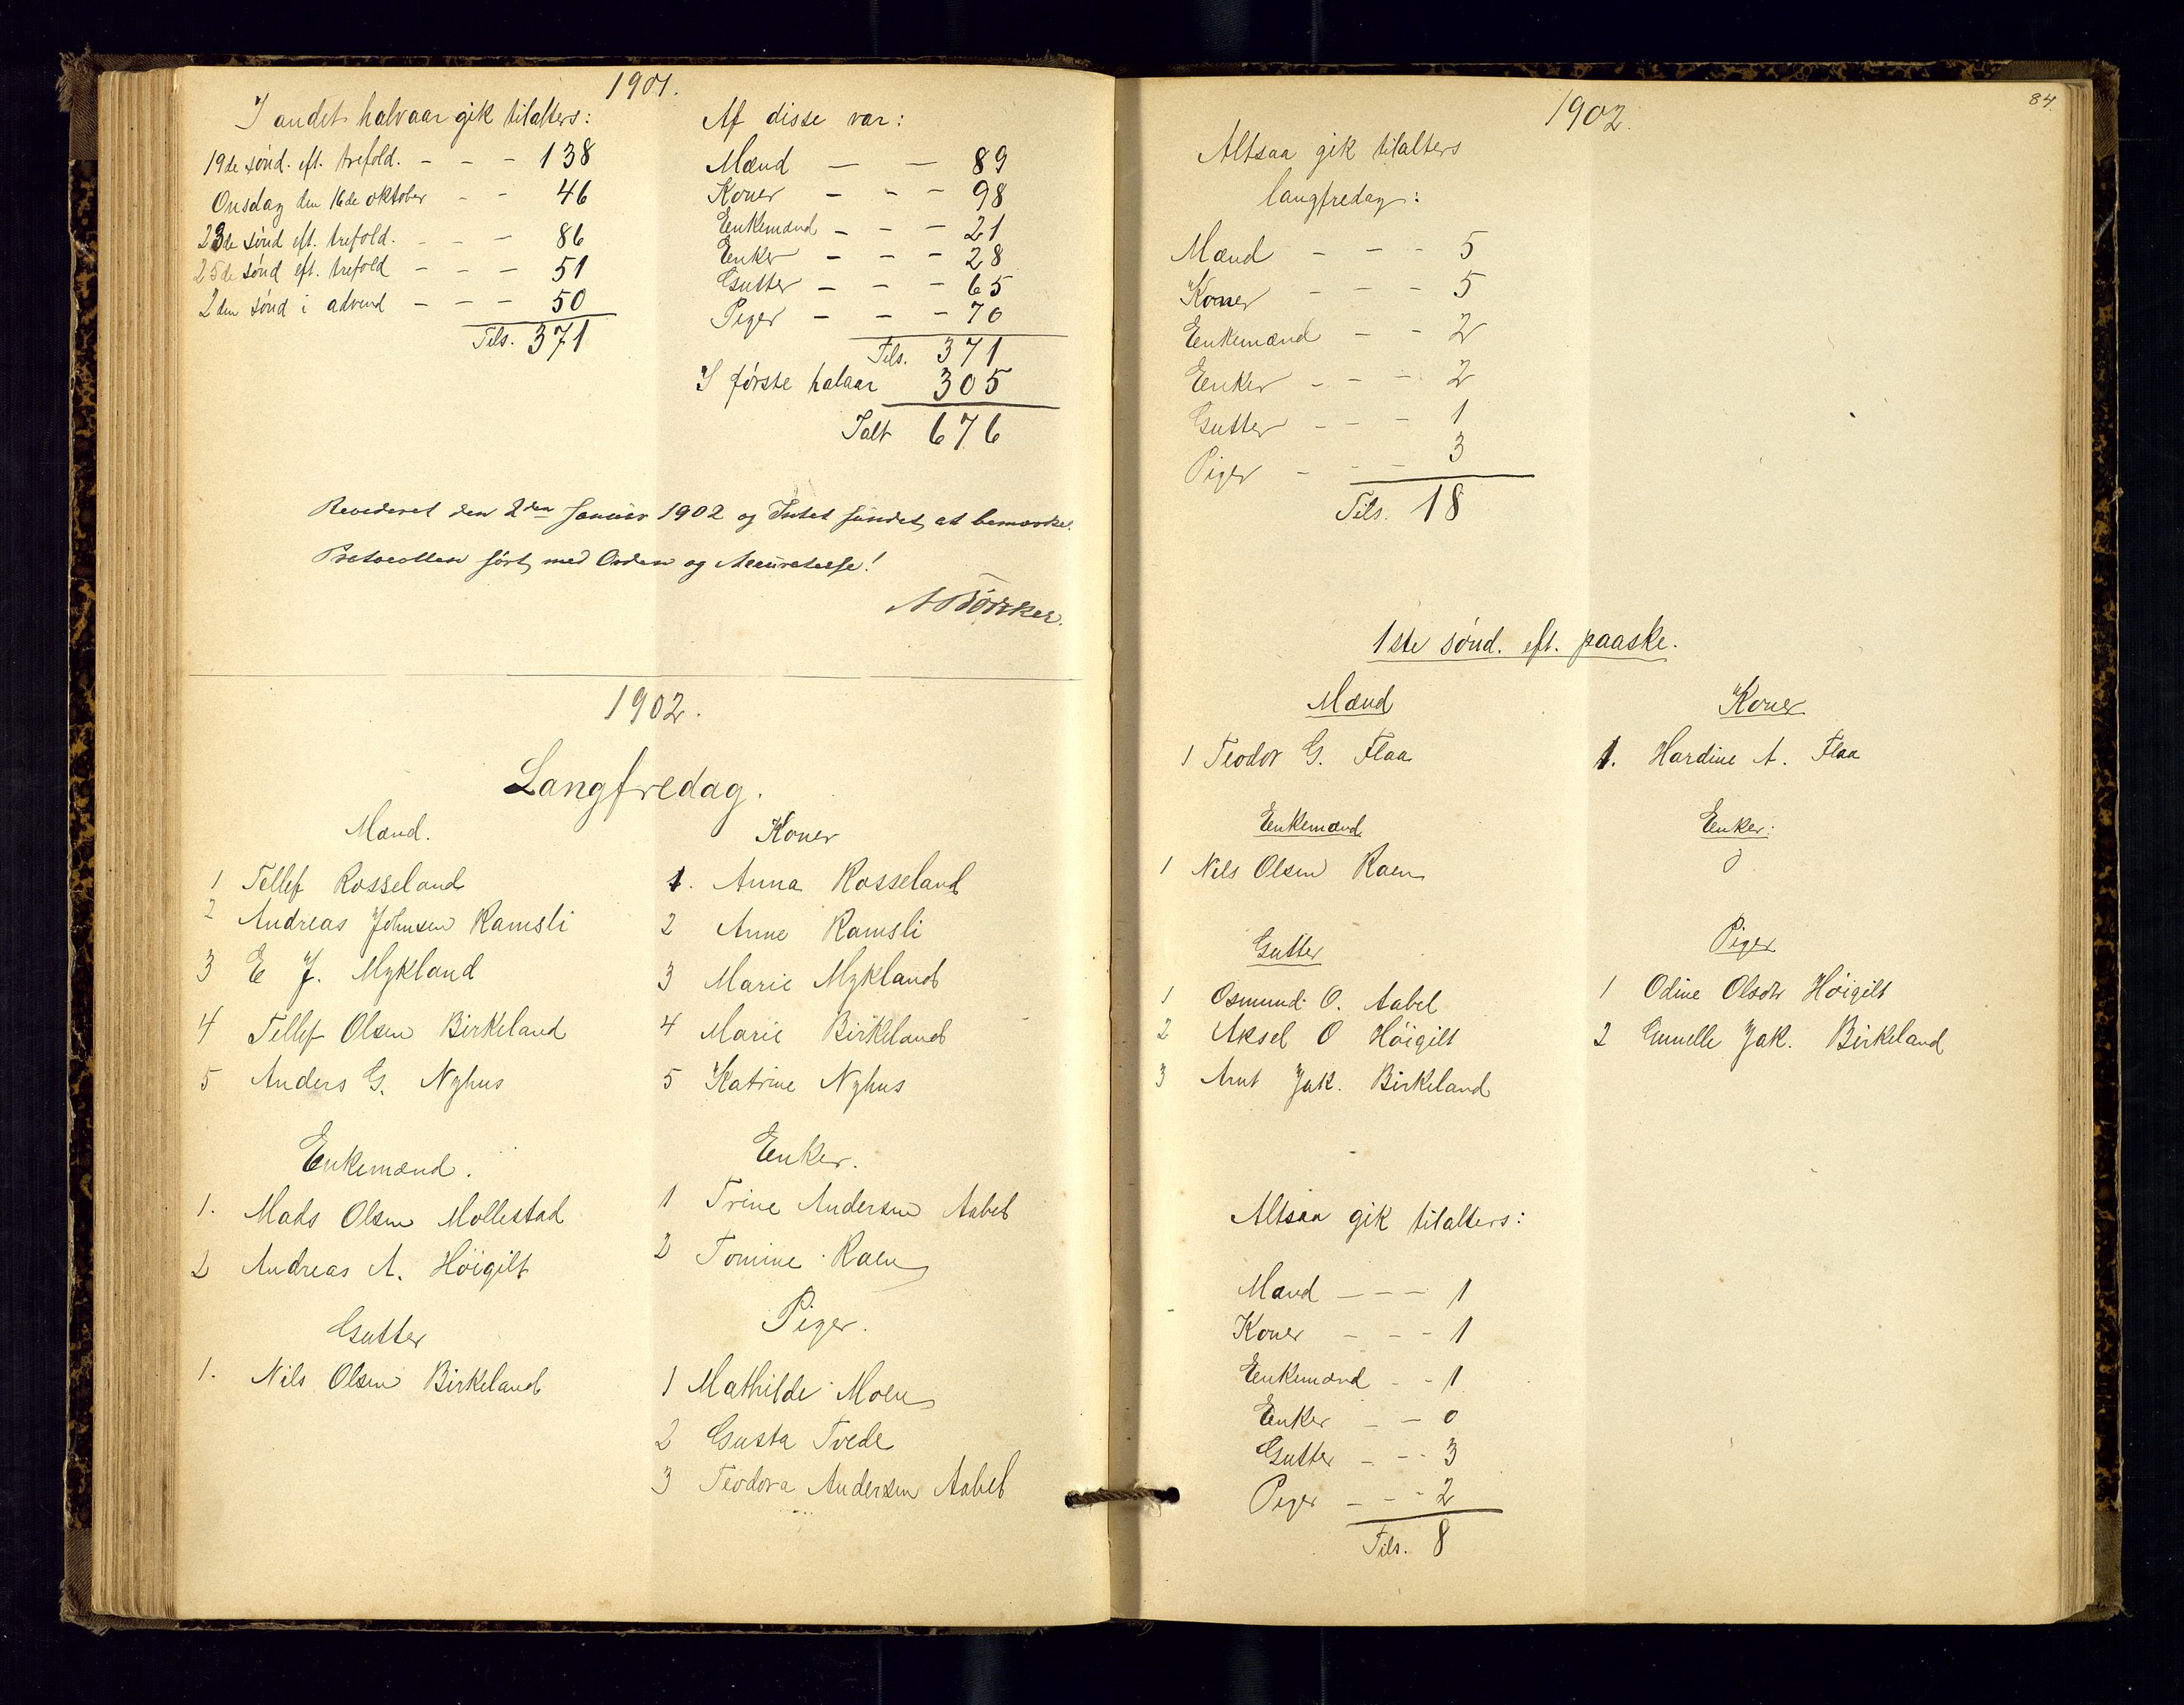 1901.
I andet halvaar gik tilalters:
19de sønd. eft. trefold. - - - 138
Onsdag den 16de oktober - - 46
23de sønd eft. trefold. - - - 86
25de sønd eft. trefold - - - 51
2den sønd i advend - - - 50
Tils. 371
Af disse var:
Mænd - - 89
Koner - - - 98
Eenkemænd - - - 21
Eenker - - - 28
Gutter - - - 65
Piger - - - 70
Tils. 371
I første halaar 305
Ialt 676
Revideret den 2den Januar 1902 og Intet fundet at bemærke.
Protocollen ført med Orden og Accuratesse!
1902.
Langfredag.
Mænd.
1 Tellef Rosseland
2 Andreas Johnsen Ramsli
3 E J. Mykland
4 Tellef Olsen Birkeland
5 Anders G. Nyhus
Koner
1. Anna Rosseland
2 Anne Ramsli
3 Marie Mykland
4 Marie Birkeland
5 Katrine Nyhus
Enkemænd.
1. Mads Olsen Mollestad
2 Andreas A. Höigilt
Eenker.
1 Trine Andersen Aabel
2 Tomine Raen
Gutter
1. Nils Olsen Birkeland
Piger.
1 Mathilde Moen
2 Gusta Tvede
3 Teodora Andersen Aabel
84.
1902.
Altsaa gik tilalters
langfredag:
Mænd - - - 5
Koner - - - 5
Eenkemænd - - 2
Eenker - - - 2
Gutter - - - 1
Piger - - - 3
Tils. 18
1ste sønd. eft. paaske.
Mænd
1 Teodor G. Flaa
Koner
1. Hardine A. Flaa
Eenkemænd
1 Nils Olsen Raen
Eenker:
0
Gutter
1 Osmund O. Aabel
2 Aksel O Höigilt
3 Arnt Jak. Birkeland
Piger
1 Odine Olsdtr Höigilt
2 Gunelle Jak. Birkeland
Altsaa gik tilalters:
Mænd - - - 1
Koner - - - 1
Eenkemænd - - 1
Eenker - - 0
Gutter - - - 3
Piger - - - 2
Tils. 8